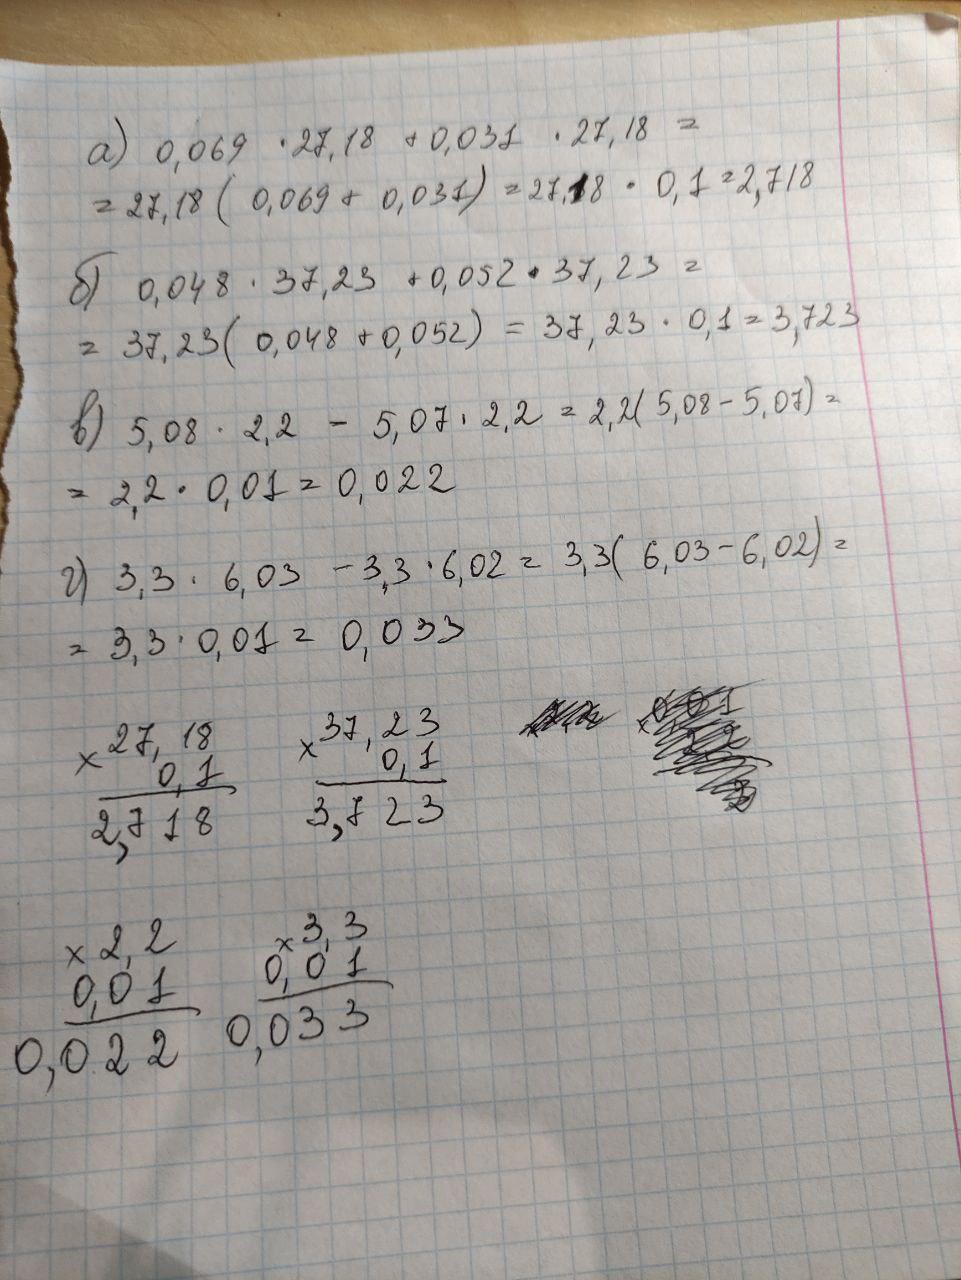 а) 0,069 · 27,18 + 0,031 · 27,18 =
= 27,18 ( 0,069 + 0,031) = 27,18 · 0,1 = 2,718
б) 0,048 · 37,23 + 0,052 · 37,23 =
= 37,23 ( 0,048 + 0,052) = 37,23 · 0,1 = 3,723
в) 5,08 · 2,2 - 5,07 · 2,2 = 2,2( 5,08 - 5,07) =
= 2,2 · 0,01 = 0,022
г) 3,3 · 6,03 - 3,3 · 6,02 = 3,3( 6,03 - 6,02) =
= 3,3 · 0,01 = 0,033
× 27,18
0,1
2,718
× 37,23
0,1
3,723
× 2,2
0,01
0,022
× 3,3
0,01
0,033